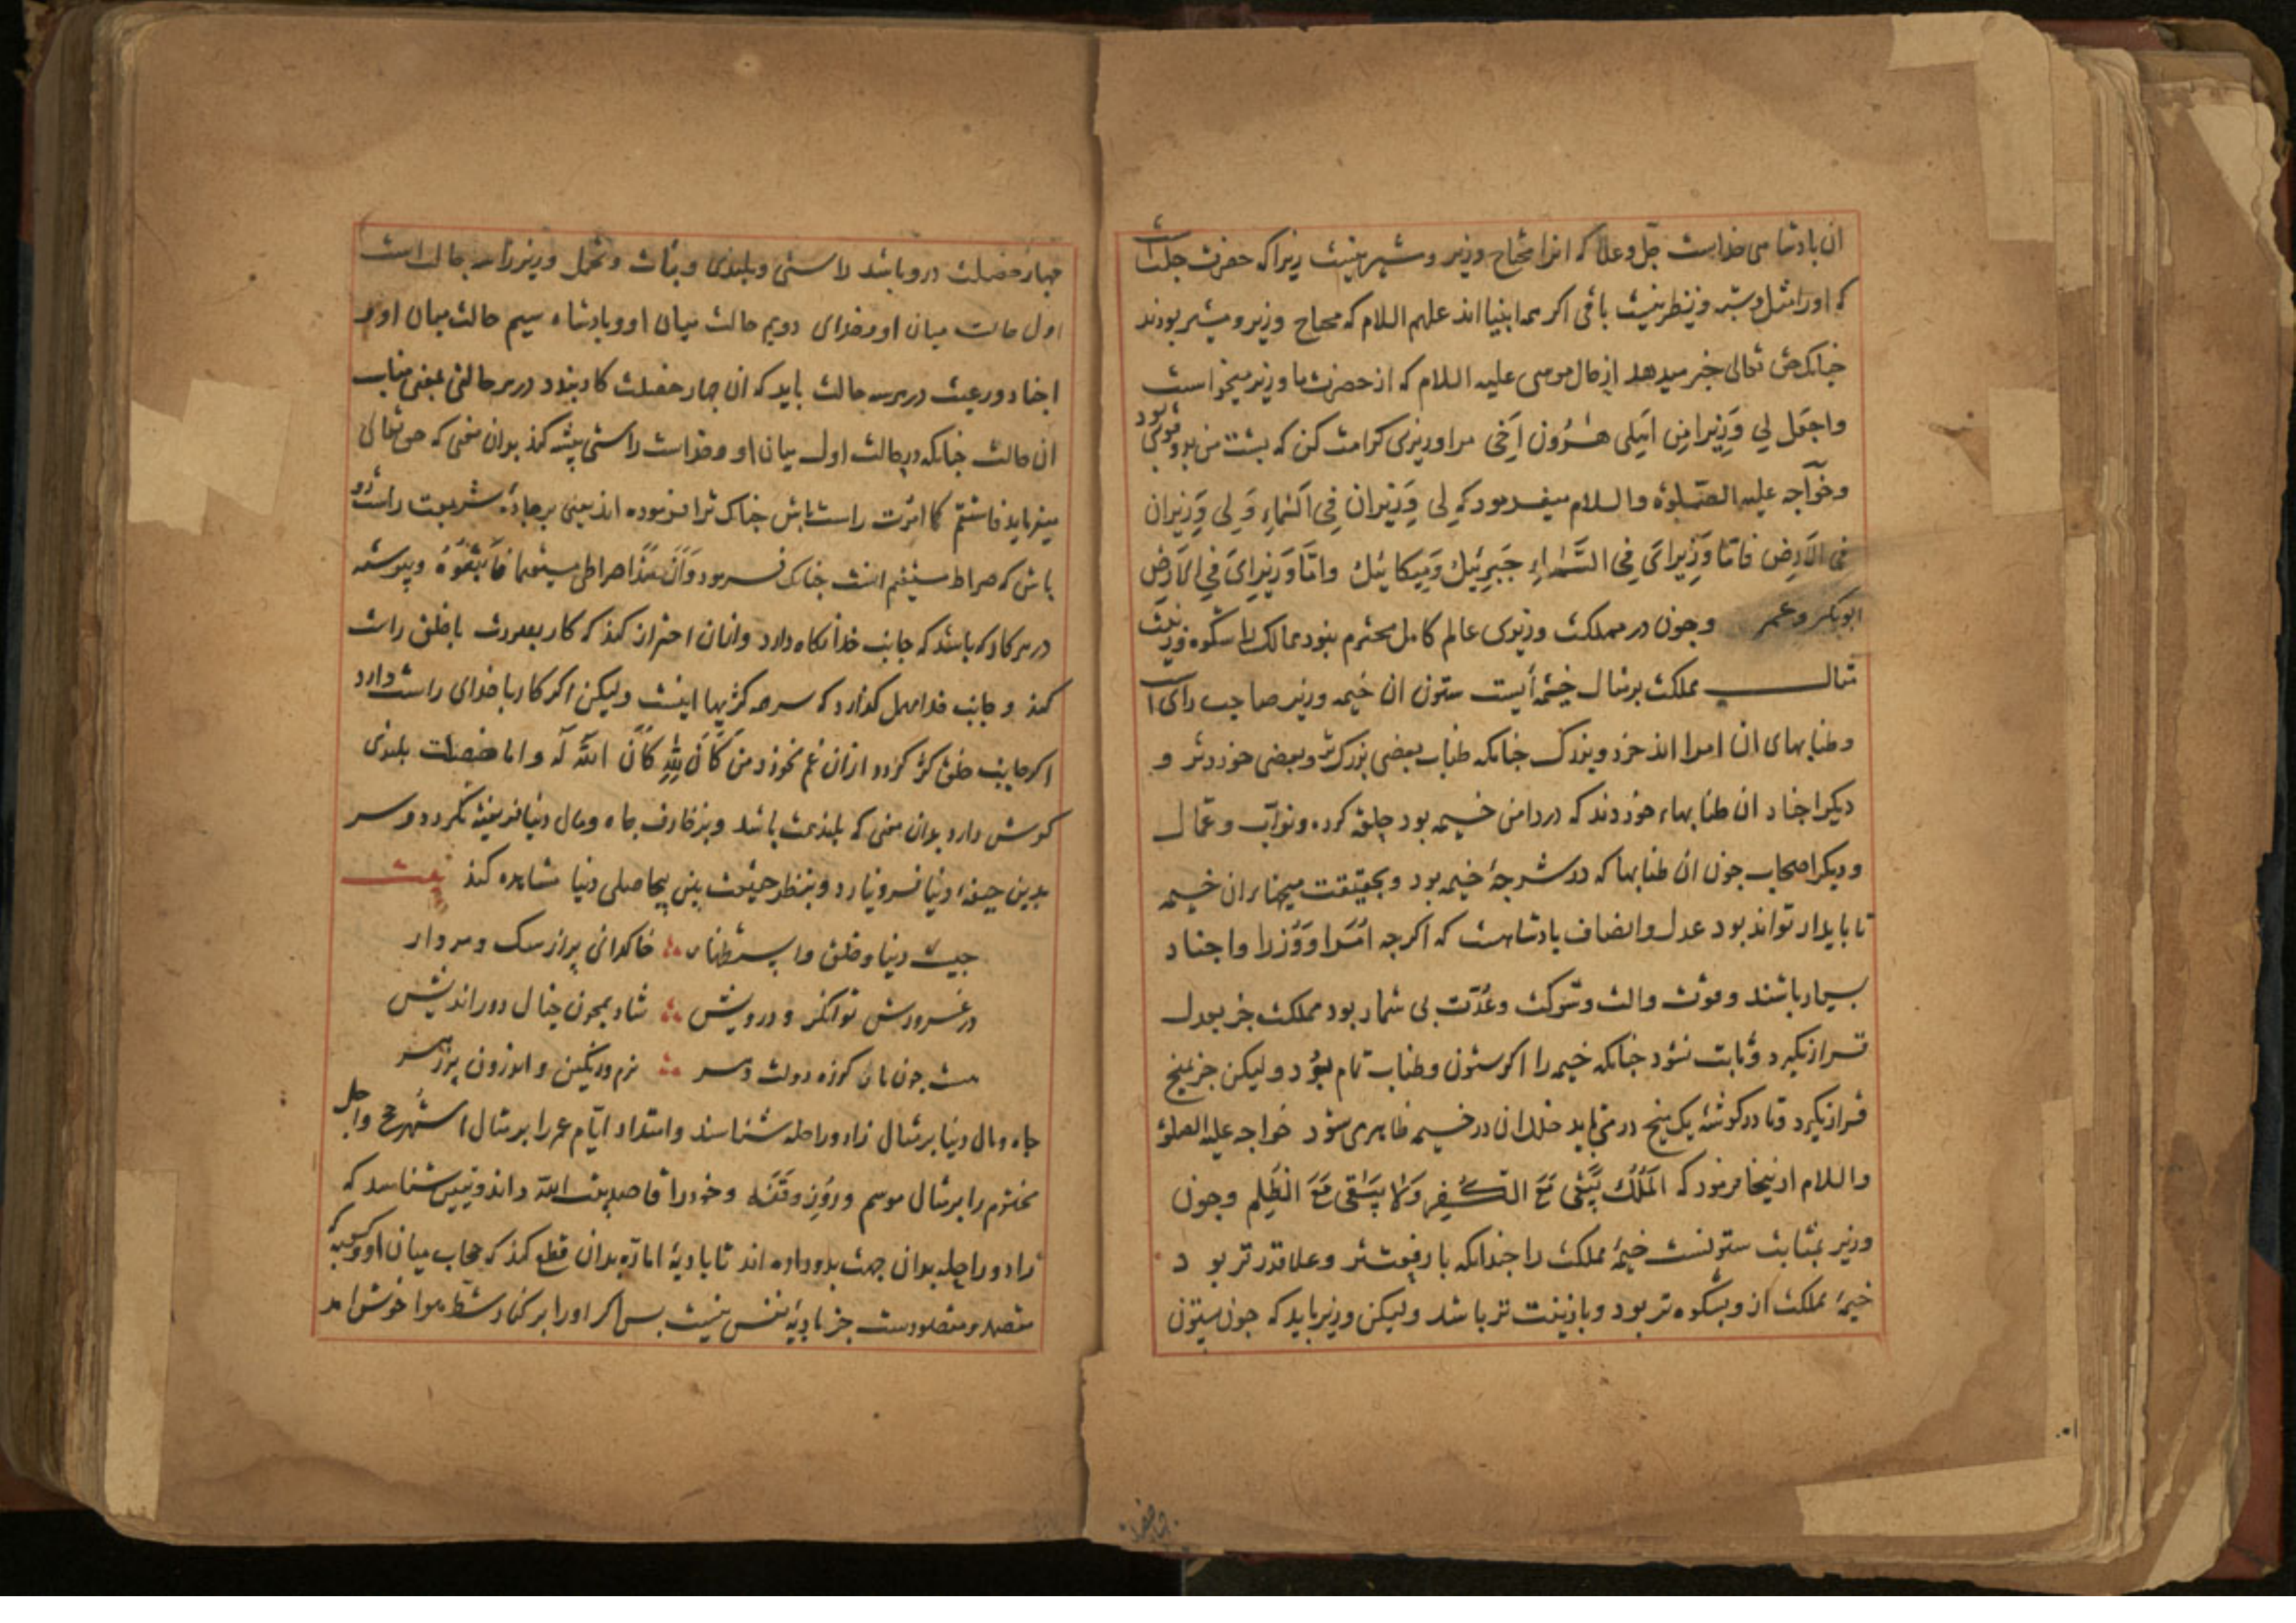 ان بادشاهی خداست جل و علا که انرا محتاج وزیر و مشیر نیست زیرا که حضرت جلت است
که اورا مثل و شبه و نظیر نیست باقی اکر همه انبیا اند علیهم السلام که محتاج وزیر و مشیر بودند
جنانک حق تعالی خبر میدهد از حال موسی علیه السلام که از حضرت ما وزیر میخواست
واجعل لي وَزِیرا مِن اَهلِی هٰرُون اَخِی مرا وزیری کرامت کن که بشت من بدو قوی بود
و خواجه علیه الصلوة والسلام میفرمود که لِی وَزِیران فِی السَّماءِ وَلِی وَزِیران
فی الاَرضِ فامّا وَزِیرایَ فِی السَّمَاءِ جَبرئیل وَمِیکائیل وامّا وَزِیرایَ فِی الاَرضِ
ابوبکر و عمر و جون در مملکت وزیری عالم کامل محترم نبود ممالک را شکوه و زینت
مثال مملکت برمثال خیمه ایست ستون ان خیمه وزیر صاحب رای است
و طنابهای ان امرا اند خرد و بزرک جنانکه طناب بعضی بزرک تر و بعضی خوردتر و
دیکر اجناد ان طنابهاء خوردند که در دامن خیمه بود حلقه کرده و نواب و عمال
و دیکر اصحاب جون ان طنابها که در شرجهٔ خیمه بود و بحقیقت میخها بران خیمه
تا بایدار تواند بود عدل و انصاف بادشاهست که اکرجه اُمَرا و وُزرا و اجناد
بسیار باشند و قوت و الت و شوکت و عُدّت بی شمار بود مملکت جز بعدل
قرار نکیرد و ثابت نشود جنانکه خیمه را اکر ستون و طناب تمام بود ولیکن جز بمیخ
قرار نکیرد و تا در کوشهٔ یک میخ در می باید خلل ان در خیمه ظاهر می شود خواجه علیه الصلوة
والسلام ازینجا فرمود که المُلکُ یَبقَی مَعَ الکُفرِ وَلا یَبقَی مَعَ الظُلمِ و جون
وزیر بمثابت ستونست خیمهٔ مملکت را جندانکه با رفیعت تر و علاقدرتر بود
خیمهٔ مملکت ازو بشکوه تر بود و بازینت تر باشد ولیکن وزیر باید که جون ستون
جهار خصلت درو باشد راستی و بلندی و ثبات و تحمل و وزیر را سه حالت است
اول حالت میان او و خدای دویم حالت میان او و بادشاه سیم حالت میان او و
اجناد و رعیت در هر سه حالت باید که ان جهار خصلت کار بندد در هر حالتی بمعنی مناسب
ان حالت جنانکه در حالت اول میان او و خداست راستی بیشه کند بدان معنی که حق تعالی
میفرماید فاستقم کما اُمِرت راست باش جنانک ترا فرموده اند یعنی بر جادهٔ شریعت راست رو
باش که صراط مستقیم انست جنانک فرمود وَاَنَّ هٰذا صراطی مستقیما فَاتَّبِعُوهُ و بیوسته
در هر کار که باشد که جانب خدا نکاه دارد و ازان احتراز کند که کار بصورت با خلق راست
کند و جانب خدا مهمل کذارد که سر همه کژیها اینست ولیکن اکر کار با خدای راست دارد
اکر جانب خلق کژ کردد ازان غم نخورد من کَانَ لِلّٰهِ کَانَ اللّٰه لَه و اما خصلت بلندی
کوش دارد بدان معنی که بلند همت باشد و بزخارف جاه و مال دنیا فریفته نکردد و سر
بدین جیفهٔ دنیا فرو نیارد و بنظر حقیقت بین بیحاصلی دنیا مشاهده کند بیت
جیست دنیا و خلق و استظهار خاکدانی بر از سک و مردار
در غرورش توانکر و درویش شاد همجون خیال دوراندیش
هست جون مار کرزه دولت دهر نرم و رنکین و اندرون بر زهر
جاه و مال دنیا برمثال زاد و راحله شناسد و امتداد ایام عمر را برمثال اشهر حج و اجل
محتوم را برمثال موسم و روز وقفه و خود را قاصد بیت الله داند و یقین شناسد که
زاد و راحله بدان جهت بدو داده اند تا بادیهٔ اماره بدان قطع کند که حجاب میان او و کعبه که
مقصد و مقصودست جز بادیهٔ نفس نیست بس اکر اورا بر کنار شط هوا خوش امد